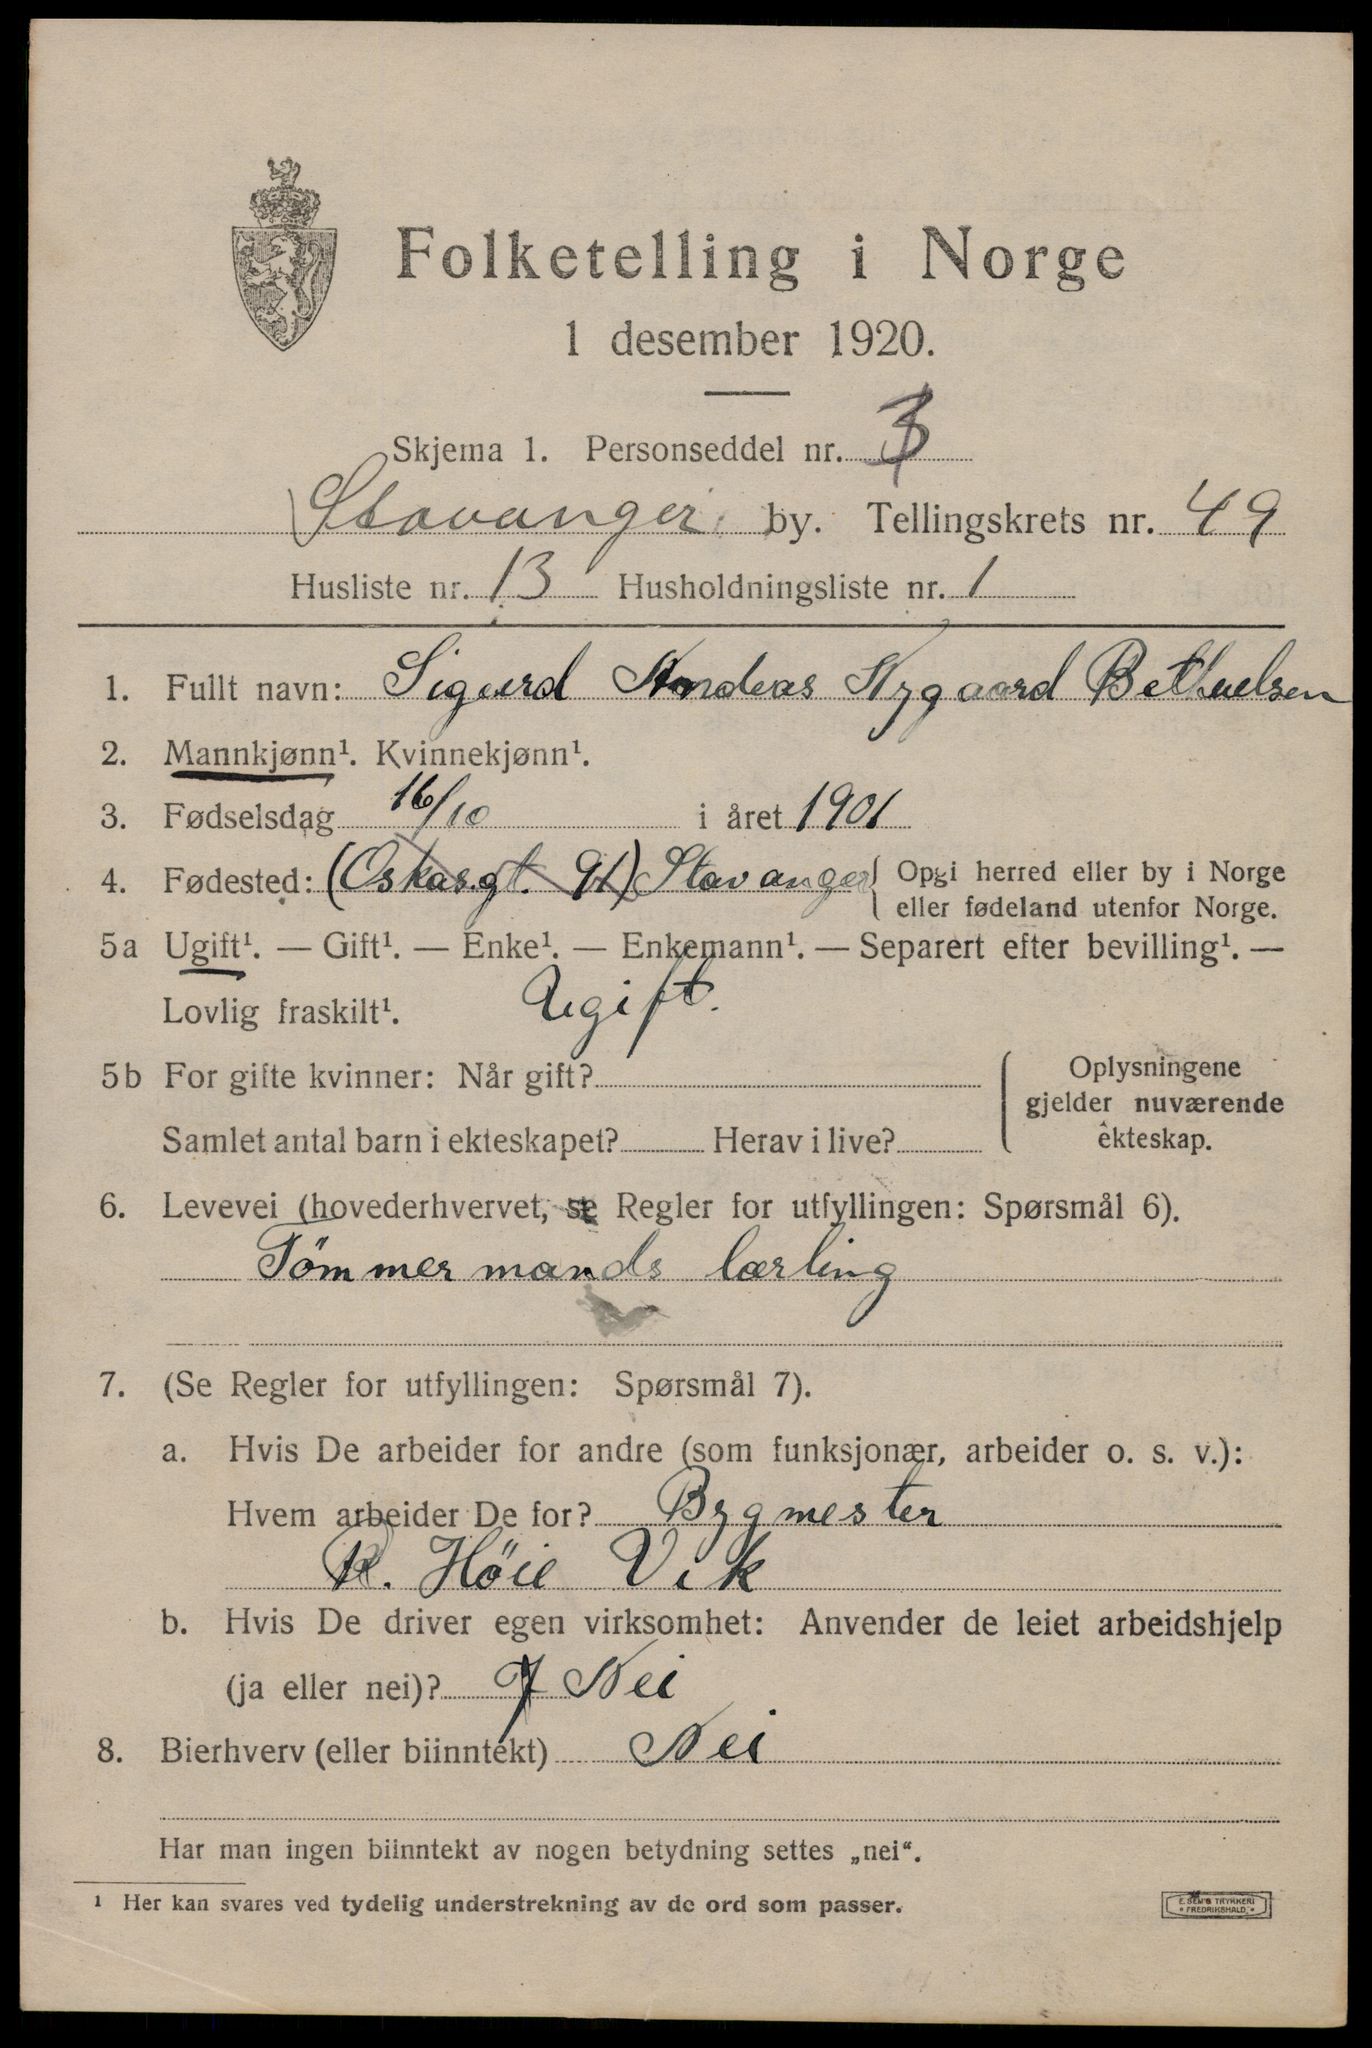 Folketelling i Norge
1 desember 1920.
Skjema 1. Personseddel nr. 3
Stavanger by. Tellingskrets nr. 49
Husliste nr. 13 Husholdningsliste nr. 1
1. Fullt navn: Sigurd Andreas Nygaard Bethuelsen
2. Mannkjønn¹. Kvinnekjønn¹.
3. Fødselsdag 16/10 i året 1901
4. Fødested: (Oskarsgt. 91) Stavanger { Opgi herred eller by i Norge
eller fødeland utenfor Norge.
5a Ugift¹. — Gift¹. — Enke¹. — Enkemann¹. — Separert efter bevilling¹. —
Lovlig fraskilt¹. Ugift.
5b For gifte kvinner: Når gift?
Samlet antal barn i ekteskapet? Herav i live?
Oplysningene
gjelder nuværende
ekteskap.
6. Levevei (hovederhvervet, se Regler for utfyllingen: Spørsmål 6).
Tömmermands lærling
7. (Se Regler for utfyllingen: Spørsmål 7).
a. Hvis De arbeider for andre (som funksjonær, arbeider o. s. v.):
Hvem arbeider De for? Bygmester
R. Höie Vik
b. Hvis De driver egen virksomhet: Anvender de leiet arbeidshjelp
(ja eller nei)? Nei
8. Bierhverv (eller biinntekt) Nei
Har man ingen biinntekt av nogen betydning settes „nei“.
¹ Her kan svares ved tydelig understrekning av de ord som passer.
E. SEM'S TRYKKERI
FREDRIKSHALD